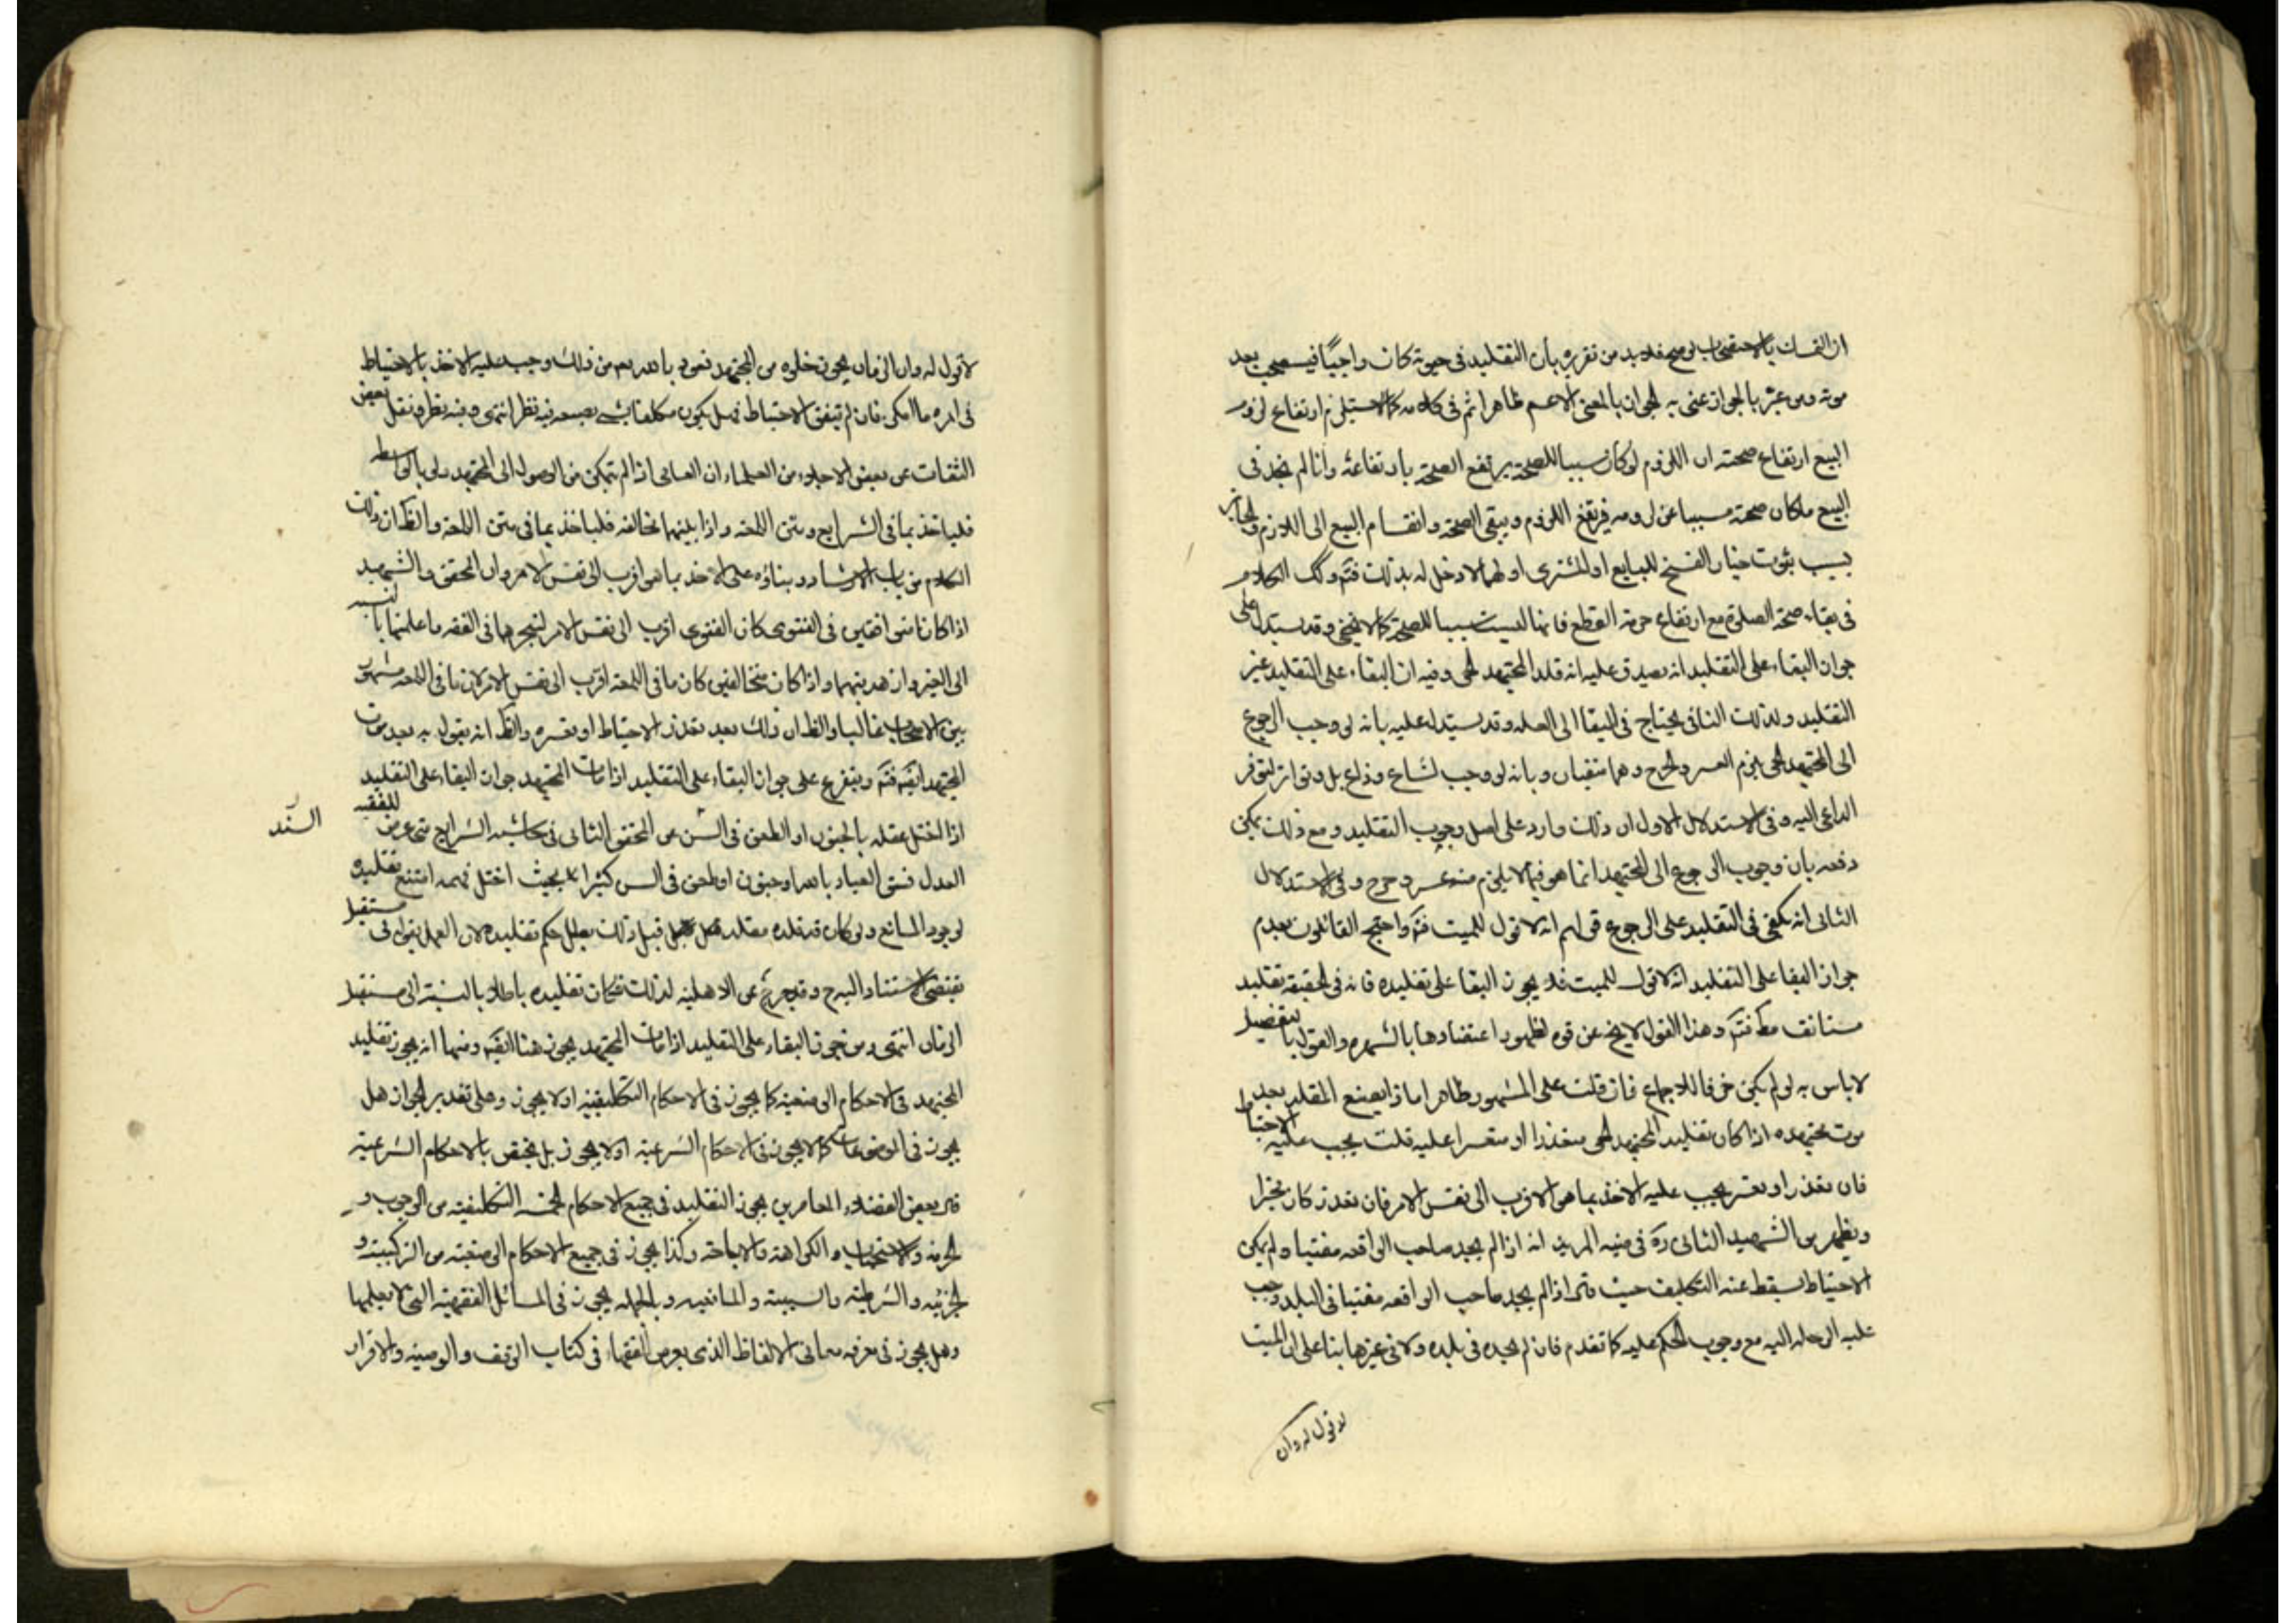 ان التمسك بالاستصحاب لو صح فلا بد من تقريره بأن التقليد في حيوته كان واجبًا فيستصحب بعد
موته ومن عبّر بالجواز عنى به الجواز بالمعنى الاعم ظاهرا ثم في كلامه كما لا يستلزم ارتفاع لزوم
البيع ارتفاع صحته ان اللزوم لو كان سببا للصحة يرتفع الصحة بارتفاعه وانا لم نجد في
البيع ما كان صحته مسببا عن لزومه فيرتفع اللزوم ويبقى الصحة وانقسام البيع الى اللازم والجايز
بسبب ثبوت خيار الفسخ للبايع او المشترى او لهما لا دخل له بذلك فتم وكك الكلام
في بقاء صحة الصلوة مع ارتفاع حرمة القطع فانها ليست سببا للصحة كما لا يخفى وقد يستدل على
جواز البقاء على التقليد انه يصدق عليه انه قلد المجتهد الحي وفيه ان البقاء على التقليد غير
التقليد ولذلك النافي يحتاج في البقا الى العله وقد يستدل عليه بانه لو وجب الرجوع
الى المجتهد الحي يلزم العسر والحرج وهما منفيان وبانه لو وجب لشاع وذاع بل وتواتر لتوفر
الداعي اليه وفي الاستدلال الاول ان ذلك وارد على اصل وجوب التقليد ومع ذلك يمكن
دفعه بان وجوب الرجوع الى المجتهد انما هو فيما لا يلزم منه عسر وحرج وفي الاستدلال
الثاني انه يكفي في التقليد على الرجوع قولهم انه لا قول للميت فتم واحتج القائلون بعدم
جواز البقا على التقليد انه لا قول للميت فلا يجوز البقا على تقليده فانه في الحقيقة تقليد
مستانف مط فتم وهذا القول لا يخ عن قوه لظهور اعتضادها بالشهره والقول بالتفصيل
لا باس به لو لم يكن خرقا للاجماع فان قلت على المشهور ظاهرا ماذا يصنع المقلد بعد
موت مجتهده اذا كان تقليد المجتهد الحي متعذرا او متعسرا عليه قلت يجب عليه الاحتياط
فان تعذر او تعسر يجب عليه الاخذ بما هو الاقرب الى نفس الامر فان تعذر كان مخيرا
ويظهر من الشهيد الثاني ره في منيه المريد انه اذا لم يجد صاحب الواقعه مفتيا ولم يمكن
الاحتياط يسقط عنه التكليف حيث قال اذا لم يجد صاحب الواقعه مفتيا في البلد وجب
عليه الرحله اليه مع وجوب الحكم عليه كما تقدم فان لم يجده في بلده ولا في غيرها بنا على ان الميت
لا قول له وان
لا قول له وان الزمان يجوز خلوه من المجتهد نعوذ بالله من ذلك وجب عليه الاخذ بالاحتياط
في امره ما امكن فان لم يتفق الاحتياط فهل يكون مكلفا بشيء يصنعه فيه نظر انتهى وفيه نظر ونقل بعض
الثقات عن بعض الاجلاء من العلماء ان العامي اذا لم يتمكن من الوصول الى المجتهد ولو بالواسطه
فلياخذ بما في الشرايع ومتن اللمعه واذا بينهما مخالفه فلياخذ بما في متن اللمعه والظ ان ذلك
الكلام من باب الارشاد وبناؤه على الاخذ بما هو اقرب الى نفس الامر وان المحقق والشهيد
اذا كانا متوافقين في الفتوى كان الفتوى اقرب الى نفس الامر لتبحرهما في الفقه ما علمنهما بالنسبه
الى الغير وازهديتهما واذا كان متخالفين كان ما في اللمعه اقرب الى نفس الامر لان ما في اللمعه مشهور
بين الاصحاب غالبا والظ ان ذلك بعد تعذر الاحتياط او تعسره والظ انه يقول به بعد موت
المجتهد ايضا فتم ويتفرع على جواز البقاء على التقليد اذا مات المجتهد جواز البقاء على التقليد
اذا اختل عقله بالجنون او الطعن في السن عن المحقق الثاني في حاشيه الشرايع متى عرض للفقيه
السند
العدل فسق العياذ بالله او جنون او طعن في السن كثيرا بحيث اختل فهمه امتنع تقليده
لوجود المانع ولو كان قد قلده مقلد قبل ذلك بطل حكم تقليده لان العمل بقوله في مستقبل
يقتضى الاستناد اليه ح وقد خرج عن الاهليه لذلك فكان تقليده باطلا بالنسبة الى مستقبل
الزمان انتهى ومن جوز البقاء على التقليد اذا مات المجتهد يجوز هنا ايضا ومنها انه يجوز تقليد
المجتهد في الاحكام الوضعيه كما يجوز في الاحكام التكليفيه او لا يجوز وعلى تقدير الجواز هل
يجوز في الموضوعات كما يجوز في الاحكام الشرعيه او لا يجوز بل يختص بالاحكام الشرعيه
قال بعض الفضلاء المعاصرين يجوز التقليد في جميع الاحكام الخمسه التكليفيه من الوجوب و
الحرمه والاستحباب والكراهة والاباحة وكذا يجوز في جميع الاحكام الوضعيه من الركنيه و
الجزئيه والشرطيه والسببيه والمانعيه وبالجمله يجوز في المسائل الفقهيه التي لا يعلمها
وهل يجوز في معرفه معاني الالفاظ الذي يعرض الفقهاء في كتاب الوقف والوصيه والاقرار